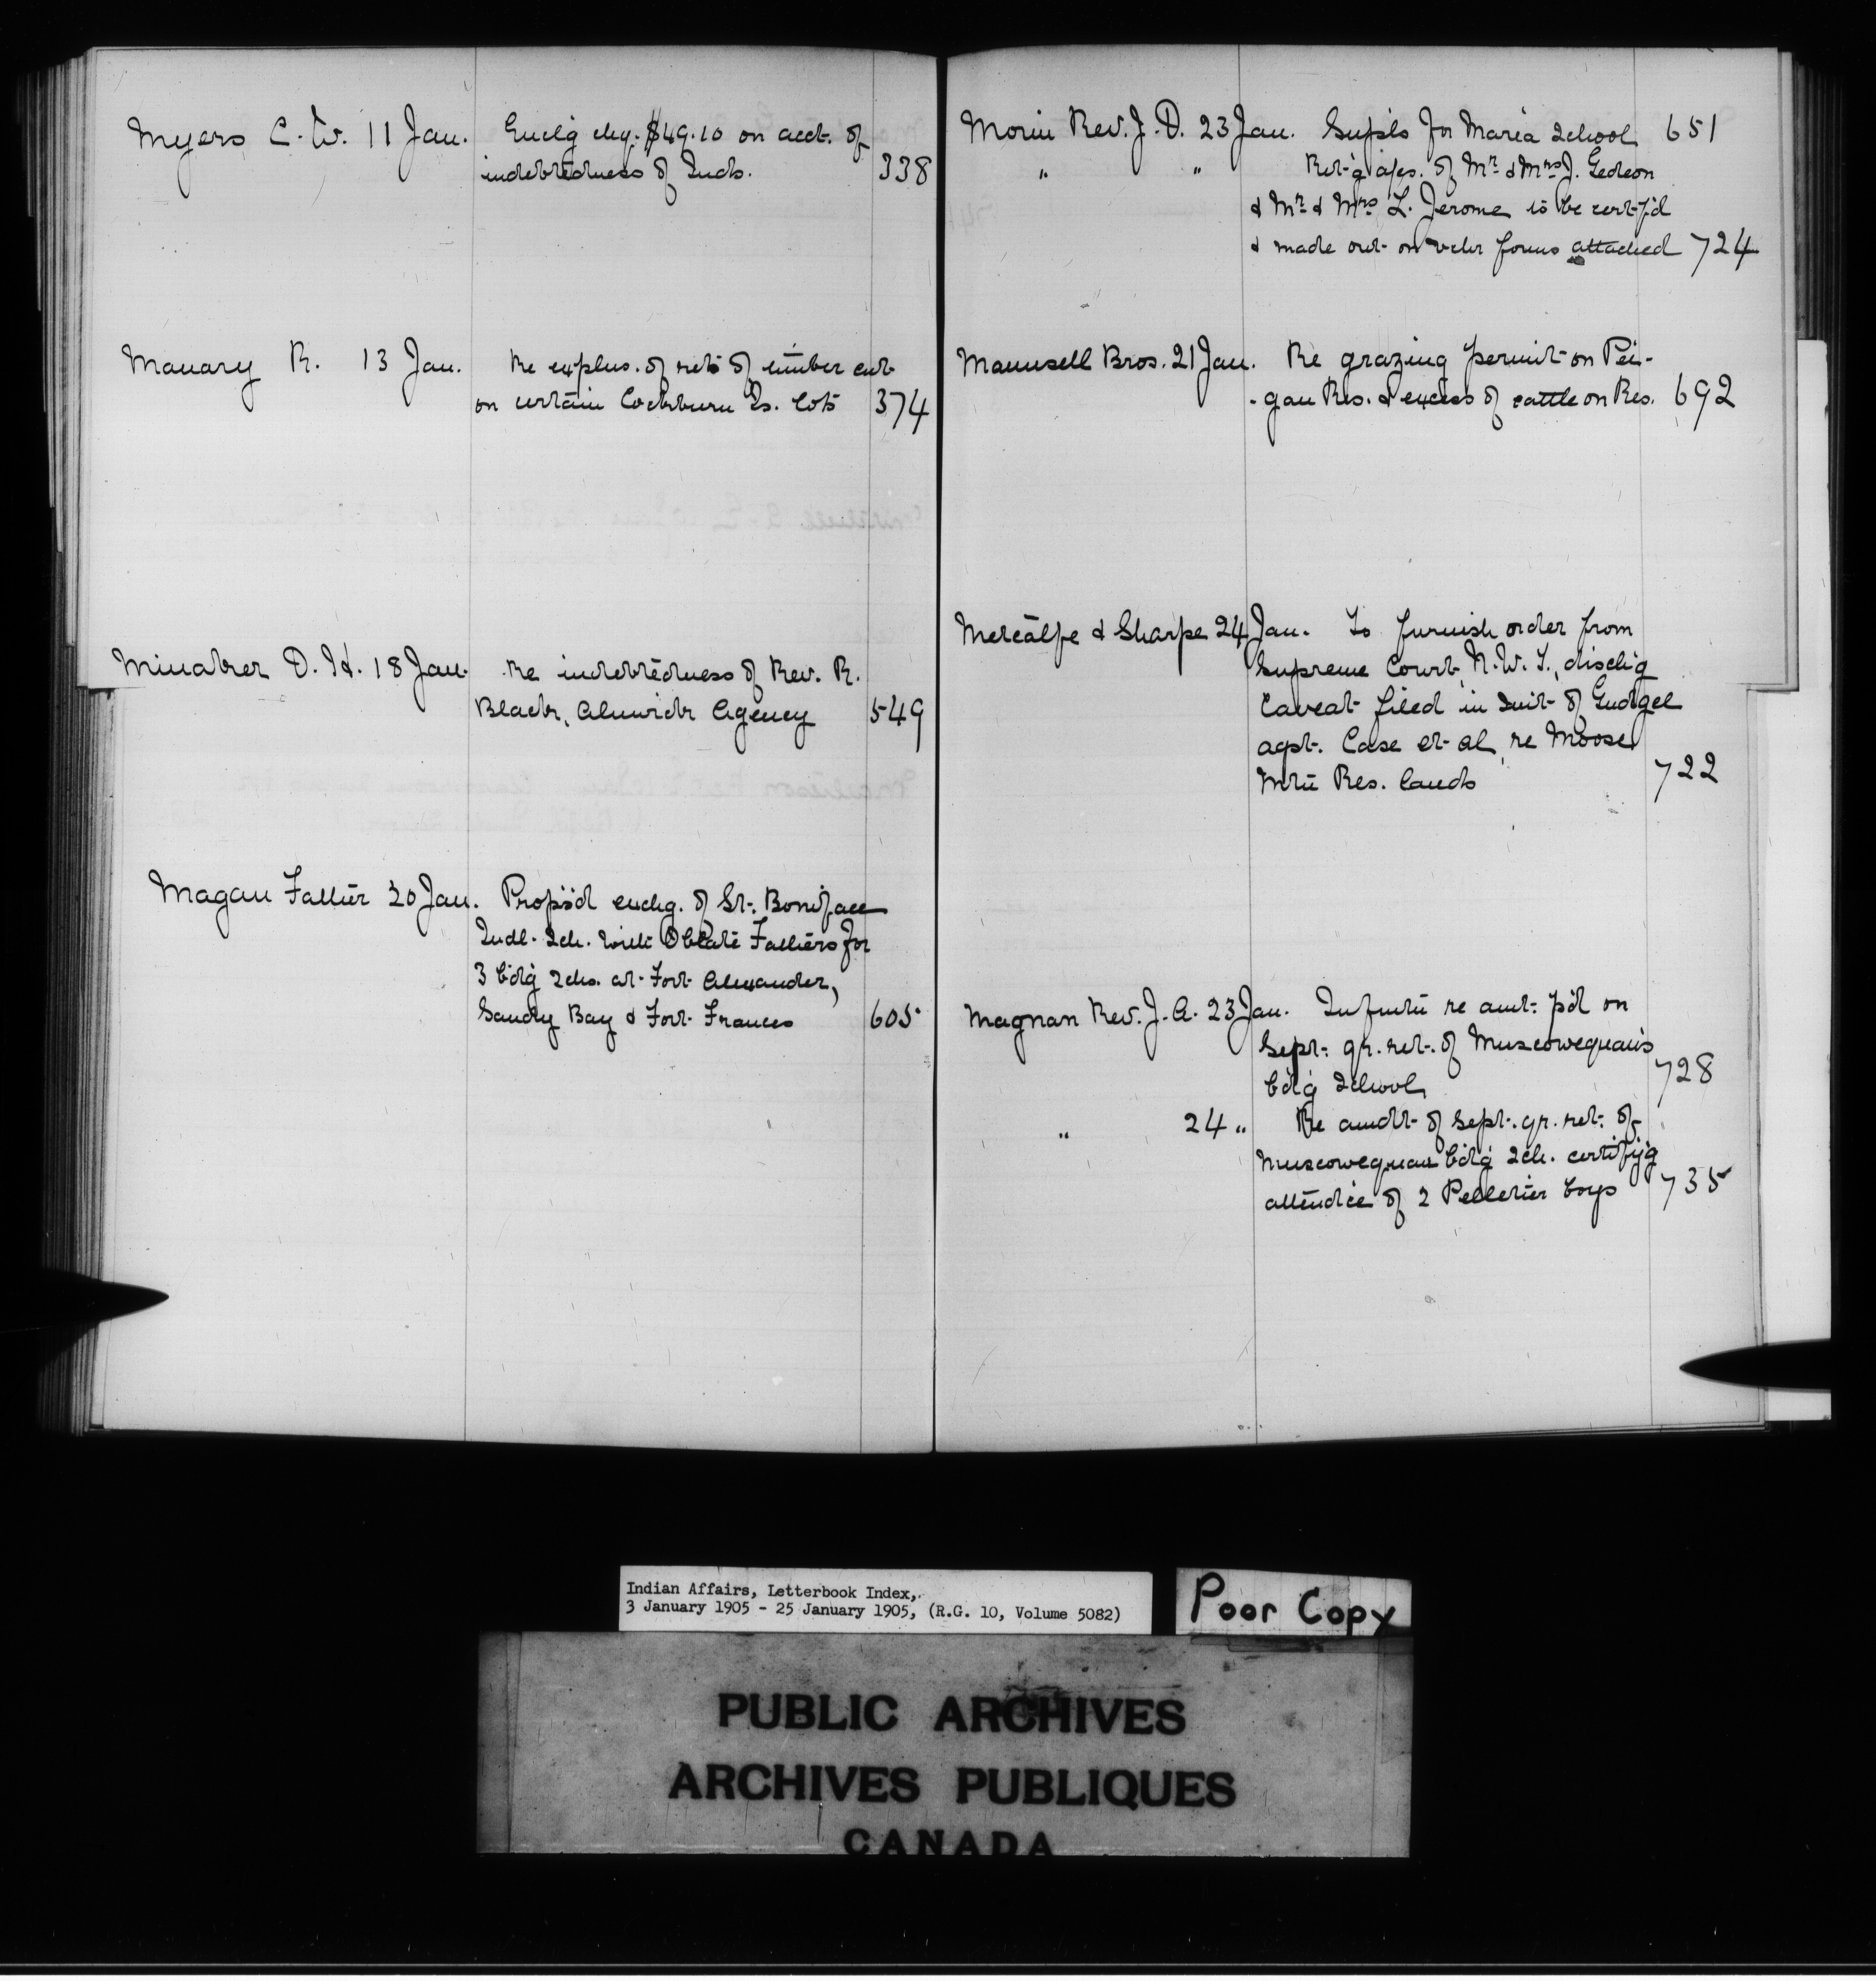 Myers C. W. 11 Jan. Encl'g chq. $49.10 on acct. of
indebtedness of Inds. 338
Manary R. 13 Jan. Re explns. of rets of timber cut
on certain Cockburn Is. lots 374
Minaker D. H. 18 Jan. Re indebtedness of Rev. R.
Black, Alnwick Agency 549
Magan Father 20 Jan. Prop's'd exchg. of St. Boniface
Indl. Sch. with Oblate Fathers for
3 bdg schs. at Fort Alexander,
Sandy Bay & Fort Frances 605
Morin Rev. J. D. 23 Jan. Supls for Maria School 651
" " Ret'g a/cs. of Mr. & Mrs. J. Gedeon
& Mr. & Mrs. L. Jerome to be cert-f'd
& made out on vchr forms attached 724
Maunsell Bros. 21 Jan. Re grazing permit on Pei-
-gan Res. & excess of cattle on Res. 692
Metcalfe & Sharpe 24 Jan. To furnish order from
Supreme Court, N.W.T., disch'g
Caveat filed in suit of Gudgel
agst. Case et al, re Moose
Mtn Res. lands 722
Magnan Rev. J. A. 23 Jan. Infmtn re amt. p'd on
Sept. qr. ret. of Muscowequan's
bdg School 728
" 24 " Re amdt of Sept. qr. ret. of
Muscowequan bdg sch. certify'g
attend'ce of 2 Pelletier boys 735
Indian Affairs, Letterbook Index,
3 January 1905 - 25 January 1905, (R.G. 10, Volume 5082)
Poor Copy
PUBLIC ARCHIVES
ARCHIVES PUBLIQUES
CANADA